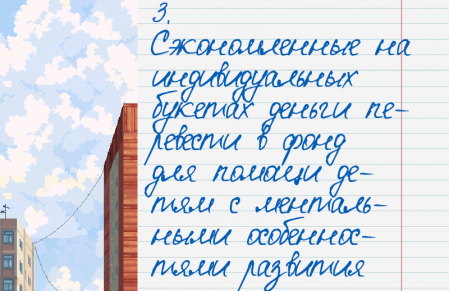 3.
Сэкономленные на
индивидуальных
букетах деньги пе-
ревести в фонд
для помощи де-
тям с менталь-
ными особеннос-
тями развития